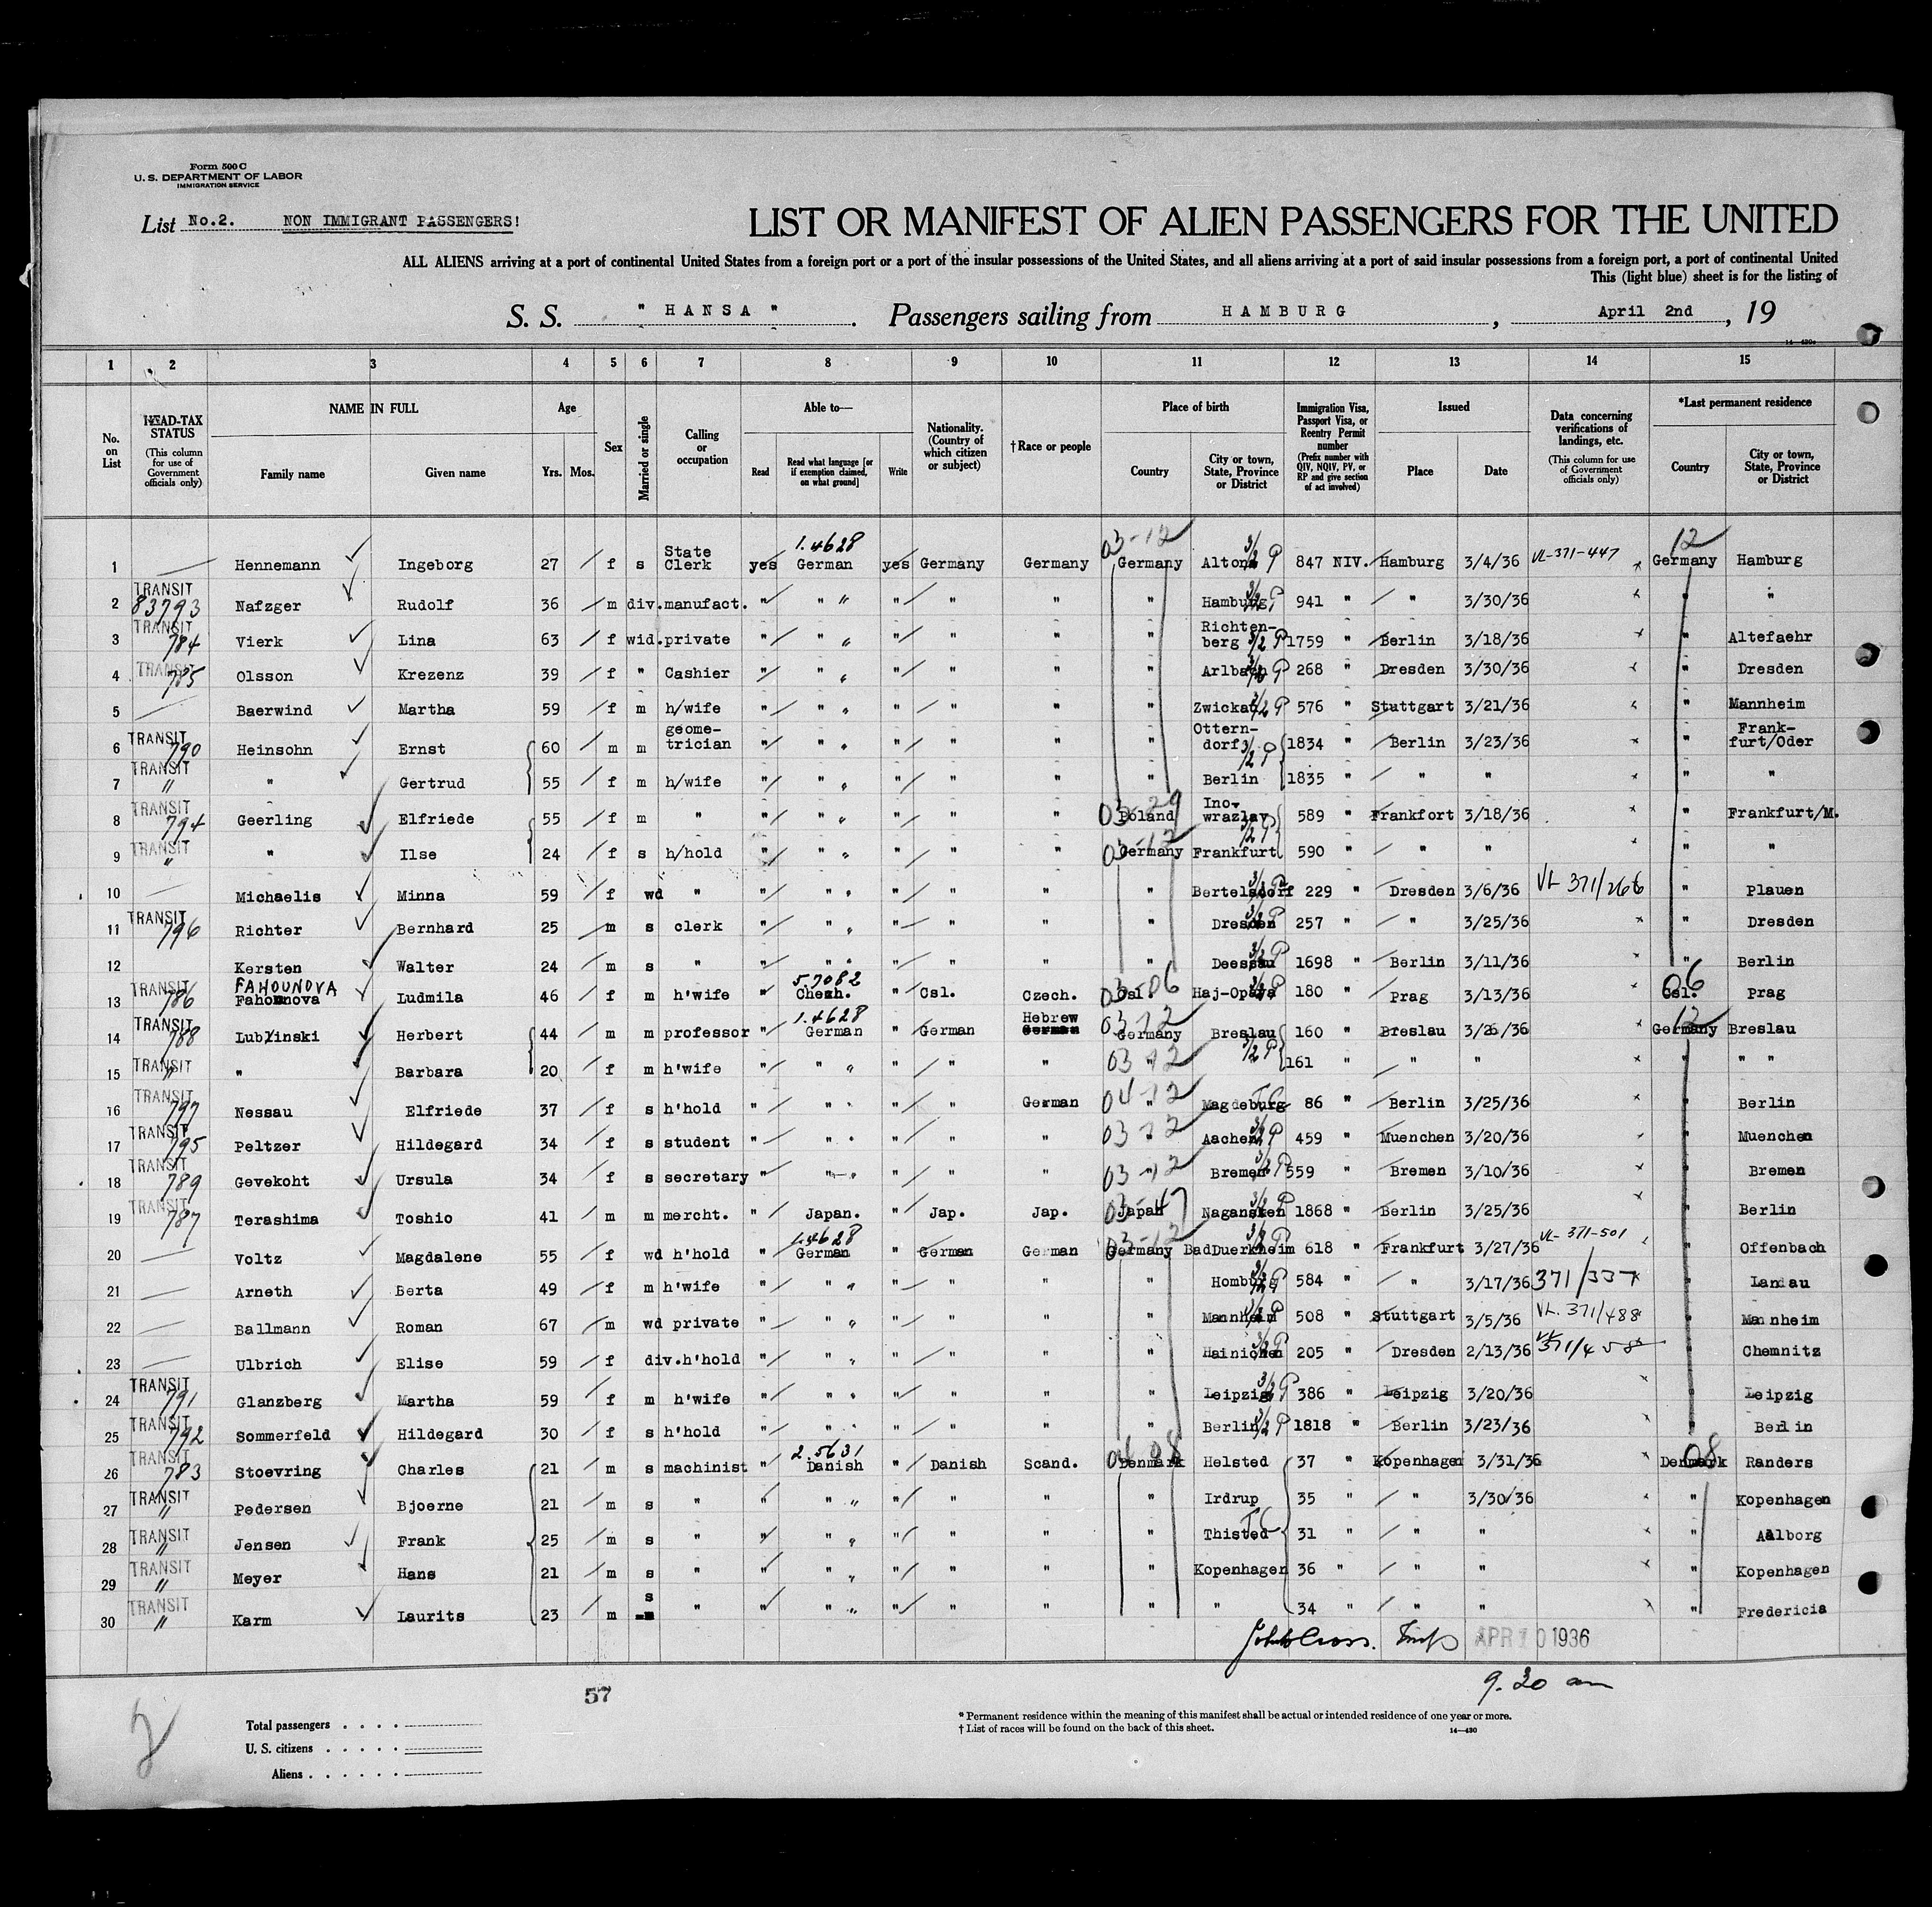 Form 500 C
U. S. DEPARTMENT OF LABOR
IMMIGRATION SERVICE
List No.2. NON IMMIGRANT PASSENGERS!
LIST OR MANIFEST OF ALIEN PASSENGERS FOR THE UNITED
ALL ALIENS arriving at a port of continental United States from a foreign port or a port of the insular possessions of the United States, and all aliens arriving at a port of said insular possessions from a foreign port, a port of continental United
This (light blue) sheet is for the listing of
S. S. " HANSA " . Passengers sailing from HAMBURG , April 2nd , 19
1 2 3 4 5 6 7 8 9 10 11 12 13 14 15
No. on List
HEAD-TAX STATUS (This column for use of Government officials only)
NAME IN FULL Family name Given name
Age Yrs. Mos.
Sex
Married or single
Calling or occupation
Able to— Read Read what language [or if exemption claimed, on what ground] Write
Nationality. (Country of which citizen or subject)
†Race or people
Place of birth Country City or town, State, Province or District
Immigration Visa, Passport Visa, or Reentry Permit number (Prefix number with QIV, NQIV, PV, or RP and give section of act involved)
Issued Place Date
Data concerning verifications of landings, etc. (This column for use of Government officials only)
*Last permanent residence Country City or town, State, Province or District
1 — Hennemann Ingeborg 27 f s State Clerk yes 1.4628 German yes Germany Germany 03-12 Germany Altona 3/2 P 847 NIV. Hamburg 3/4/36 VL-371-447 12 Germany Hamburg
2 TRANSIT 83793 Nafzger Rudolf 36 m div. manufact. " " " " " " " Hamburg 3/2 P 941 " " 3/30/36 " "
3 TRANSIT 784 Vierk Lina 63 f wid. private " " " " " " " Richten-berg 3/2 P 1759 " Berlin 3/18/36 " Altefaehr
4 TRANSIT 785 Olsson Krezenz 39 f " Cashier " " " " " " " Arlbach 3/2 P 268 " Dresden 3/30/36 " Dresden
5 — Baerwind Martha 59 f m h/wife " " " " " " " Zwickau 3/2 P 576 " Stuttgart 3/21/36 " Mannheim
6 TRANSIT 790 Heinsohn Ernst 60 m m geome-trician " " " " " " " Ottern-dorf 3/2 P 1834 " Berlin 3/23/36 " Frank-furt/Oder
7 TRANSIT " " Gertrud 55 f m h/wife " " " " " " " Berlin 1835 " " " " "
8 TRANSIT 794 Geerling Elfriede 55 f m " " " " " " " 03-29 Poland Ino-wrazlav 589 " Frankfort 3/18/36 " Frankfurt/M.
9 TRANSIT " " Ilse 24 f s h/hold " " " " " " 03-12 Germany Frankfurt 3/2 P 590 " " " " "
10 — Michaelis Minna 59 f wd " " " " " " " " Bertelsdorf 3/2 P 229 " Dresden 3/6/36 VL 371/266 " Plauen
11 TRANSIT 796 Richter Bernhard 25 m s clerk " " " " " " " Dresden 3/2 P 257 " " 3/25/36 " Dresden
12 Kersten Walter 24 m s " " " " " " " " Deessau 3/2 P 1698 " Berlin 3/11/36 " Berlin
13 TRANSIT 786 FAHOUNOVA Fahounova Ludmila 46 f m h'wife " 5.7082 Chezh. " Csl. Czech. 03-06 Csl. Haj-Opava 3/2 P 180 " Prag 3/13/36 06 Csl. Prag
14 TRANSIT 788 Lublinski Herbert 44 m m professor " 1.4628 German " German Hebrew German 03-12 Germany Breslau 160 " Breslau 3/26/36 12 Germany Breslau
15 TRANSIT " " Barbara 20 f m h'wife " " " " " " 03-12 " 3/2 P 161 " " " " " "
16 TRANSIT 797 Nessau Elfriede 37 f s h'hold " " " " " German 04-12 " Magdeburg TC 86 " Berlin 3/25/36 " Berlin
17 TRANSIT 795 Peltzer Hildegard 34 f s student " " " " " " 03-12 " Aachen 3/2 P 459 " Muenchen 3/20/36 " Muenchen
18 TRANSIT 789 Gevekoht Ursula 34 f s secretary " " " " " " 03-12 " Bremen 3/2 P 559 " Bremen 3/10/36 " Bremen
19 TRANSIT 787 Terashima Toshio 41 m m mercht. " Japan. " Jap. Jap. 03-47 Japan Nagansken 3/2 P 1868 " Berlin 3/25/36 " Berlin
20 — Voltz Magdalene 55 f wd h'hold " 1.4628 German " German German 03-12 Germany BadDuerkheim 3/2 P 618 " Frankfurt 3/27/36 VL-371-501 " Offenbach
21 — Arneth Berta 49 f m h'wife " " " " " " " Homburg 3/2 P 584 " " 3/17/36 371/337 " Landau
22 — Ballmann Roman 67 m wd private " " " " " " " Mannheim 3/2 P 508 " Stuttgart 3/5/36 VL. 371/488 " Mannheim
23 — Ulbrich Elise 59 f div. h'hold " " " " " " " Hainichen 3/2 P 205 " Dresden 2/13/36 VL 371/458 " Chemnitz
24 TRANSIT 791 Glanzberg Martha 59 f m h'wife " " " " " " " Leipzig 3/2 P 386 " Leipzig 3/20/36 " Leipzig
25 TRANSIT 792 Sommerfeld Hildegard 30 f s h'hold " " " " " " " Berlin 3/2 P 1818 " Berlin 3/23/36 " Berlin
26 TRANSIT 783 Stoevring Charles 21 m s machinist " 2.5631 Danish " Danish Scand. 04 08 Denmark Helsted 37 " Kopenhagen 3/31/36 08 Denmark Randers
27 TRANSIT " Pedersen Bjoerne 21 m s " " " " " " " " Irdrup 35 " " 3/30/36 " Kopenhagen
28 TRANSIT " Jensen Frank 25 m s " " " " " " " " Thisted TC 31 " " " " Aalborg
29 TRANSIT " Meyer Hans 21 m s " " " " " " " " Kopenhagen 36 " " " " Kopenhagen
30 TRANSIT " Karm Laurits 23 m s " " " " " " " " " 34 " " " " Fredericia
APR 10 1936
9.30 am
57
2
Total passengers . . . .
U. S. citizens . . . . .
Aliens . . . . . .
* Permanent residence within the meaning of this manifest shall be actual or intended residence of one year or more.
† List of races will be found on the back of this sheet. 14—430